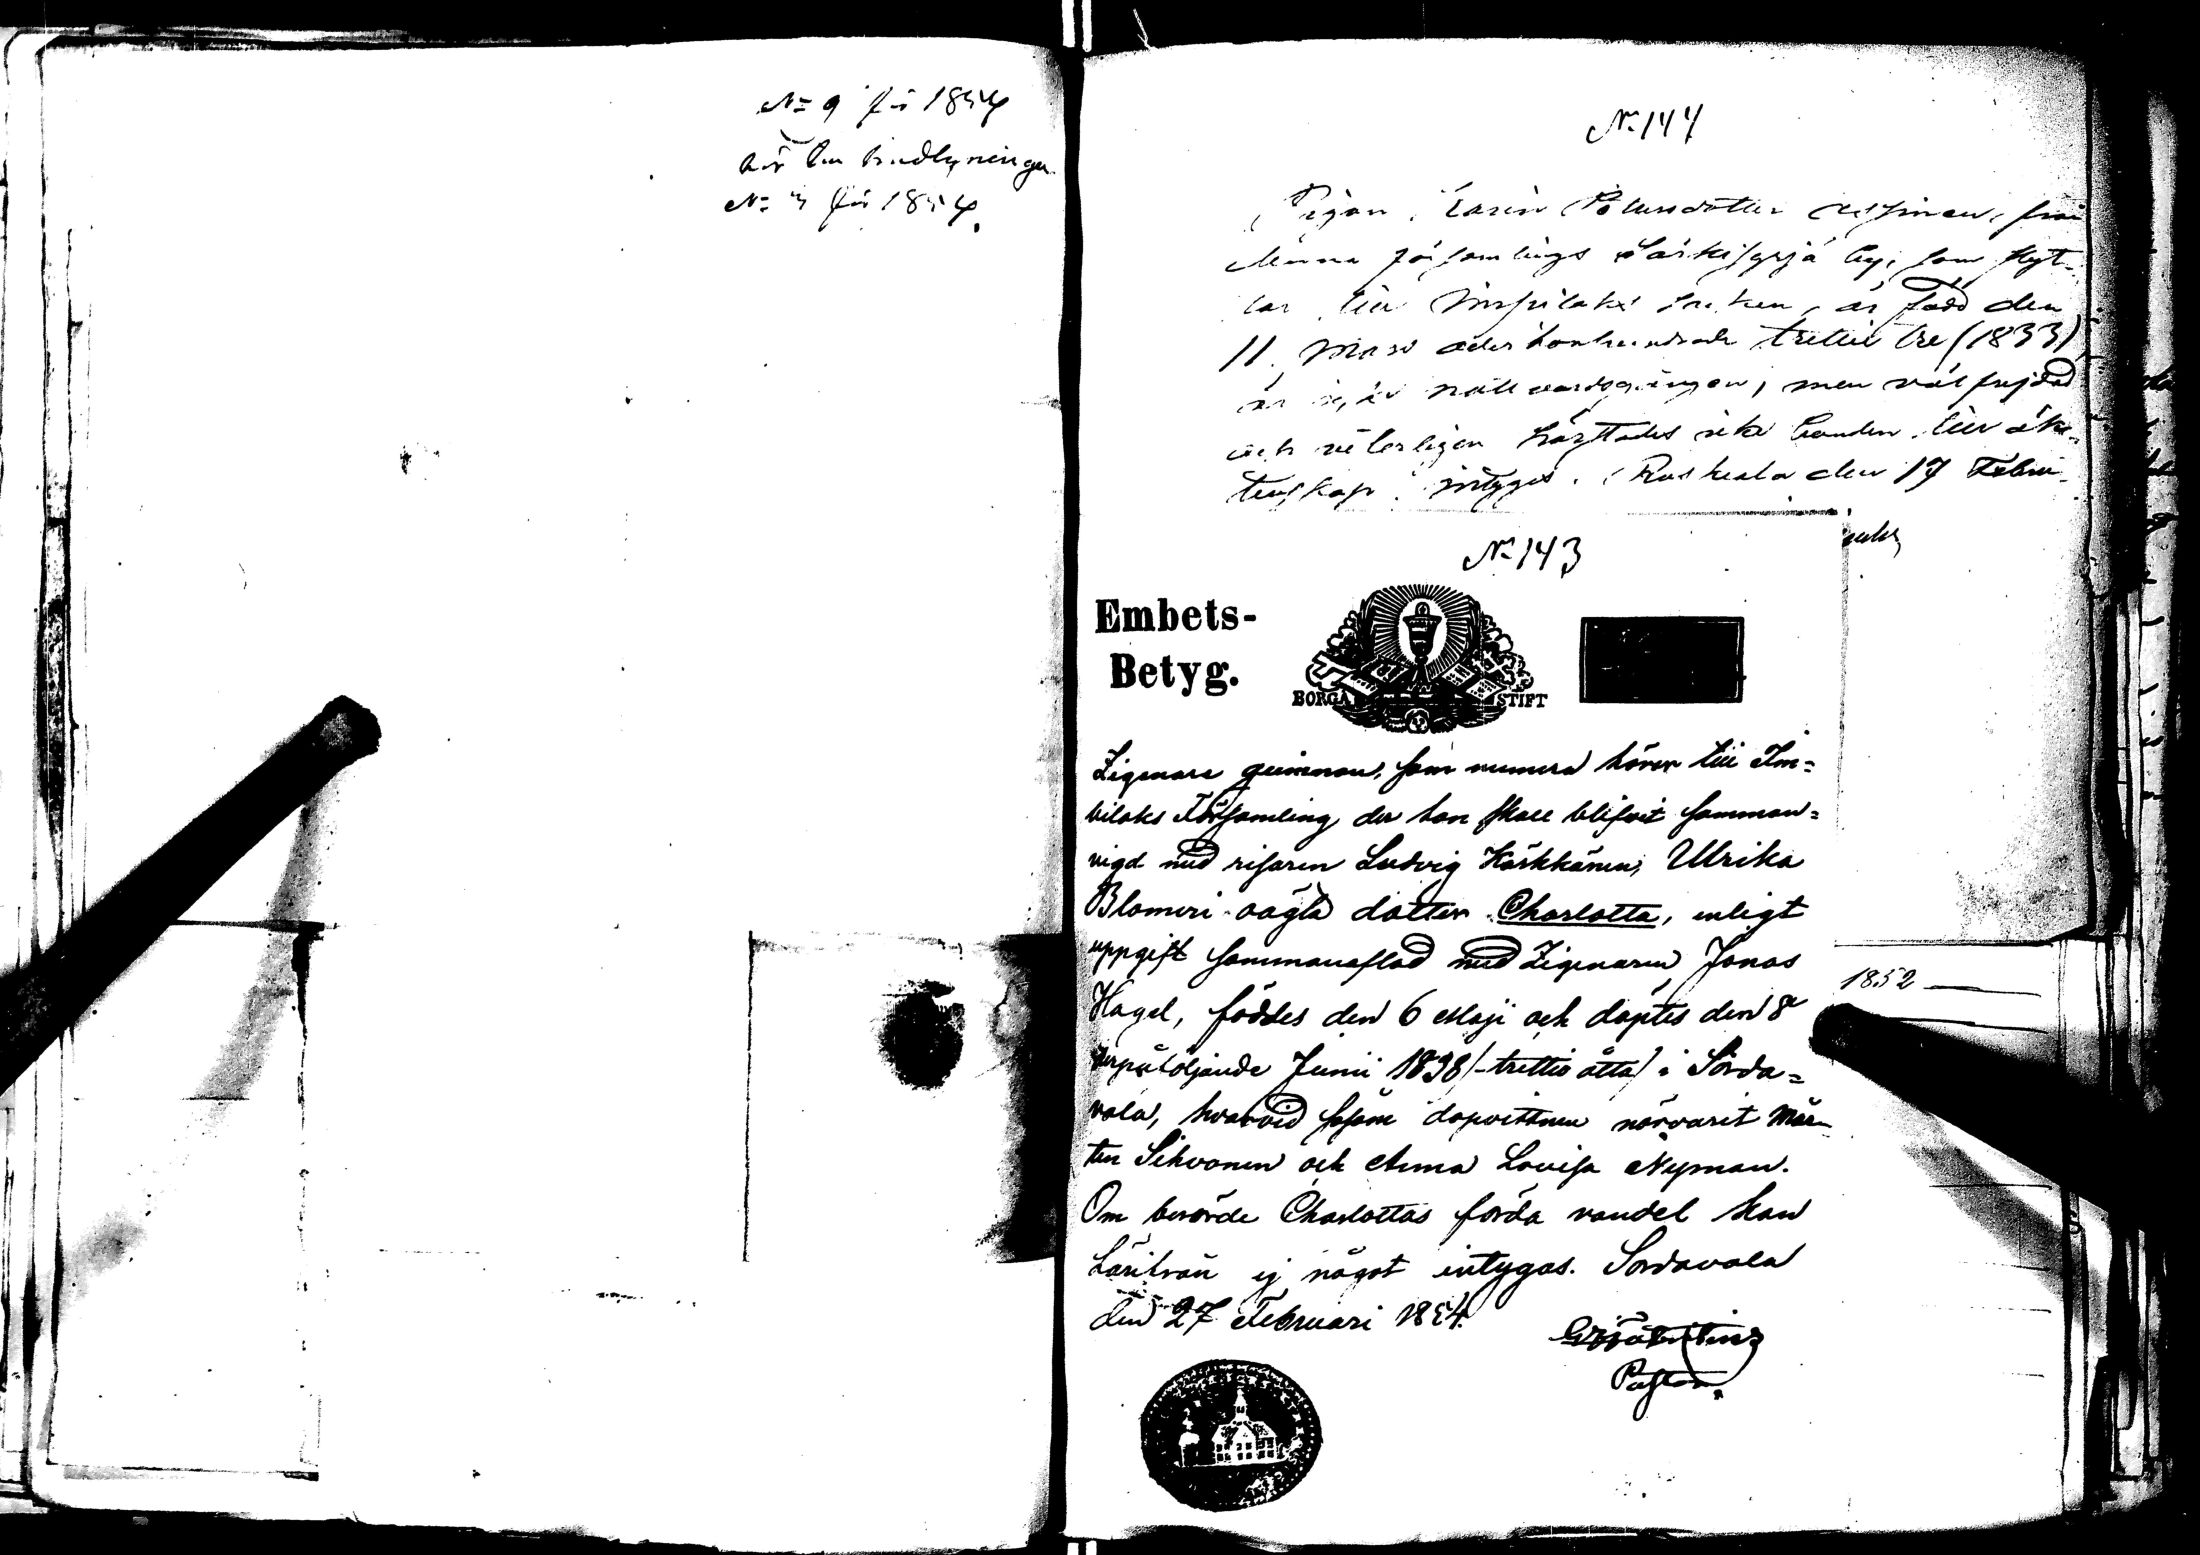 No 9 för 1854
hör till lysningen
No 3 för 1854.
No 144
Pigan Karin Petersdotter från
denna församlings Särkisyrjä by, som flyt-
tar till Impilaks socken, är född den
11 Mars adertonhundrade trettio tre (1833)
är nattvardsgången, men välfrejdad
och veterligen häftades icke hander till äk-
tenskap intygas. Ruskeala den 17 Febru-
No 143
Embets-
Betyg.
BORGÅ STIFT
Zigenare qvinnan, som numera hörer till Im=
bilaks Församling der hon skall blifvit samman=
vigd med resaren Ludvig Kärkkäinen, Ulrika
Blomeri oägta dotter Charlotta, enligt
uppgift sammanaflad med Zigenaren Jonas
Hagel, föddes den 6 Maji och döptes den 8
derpåföljande Junii 1838 (-trettio åtta) i Sorda=
vala, hvarvid såsom dopvittnen närvarit Mår-
ten Sihvonen och Anna Lovisa Nyman.
Om berörde Charlottas förda vandel kan
härifrån ej något intygas. Sordavala
den 27 Februari 1854.
Pastor.
1852